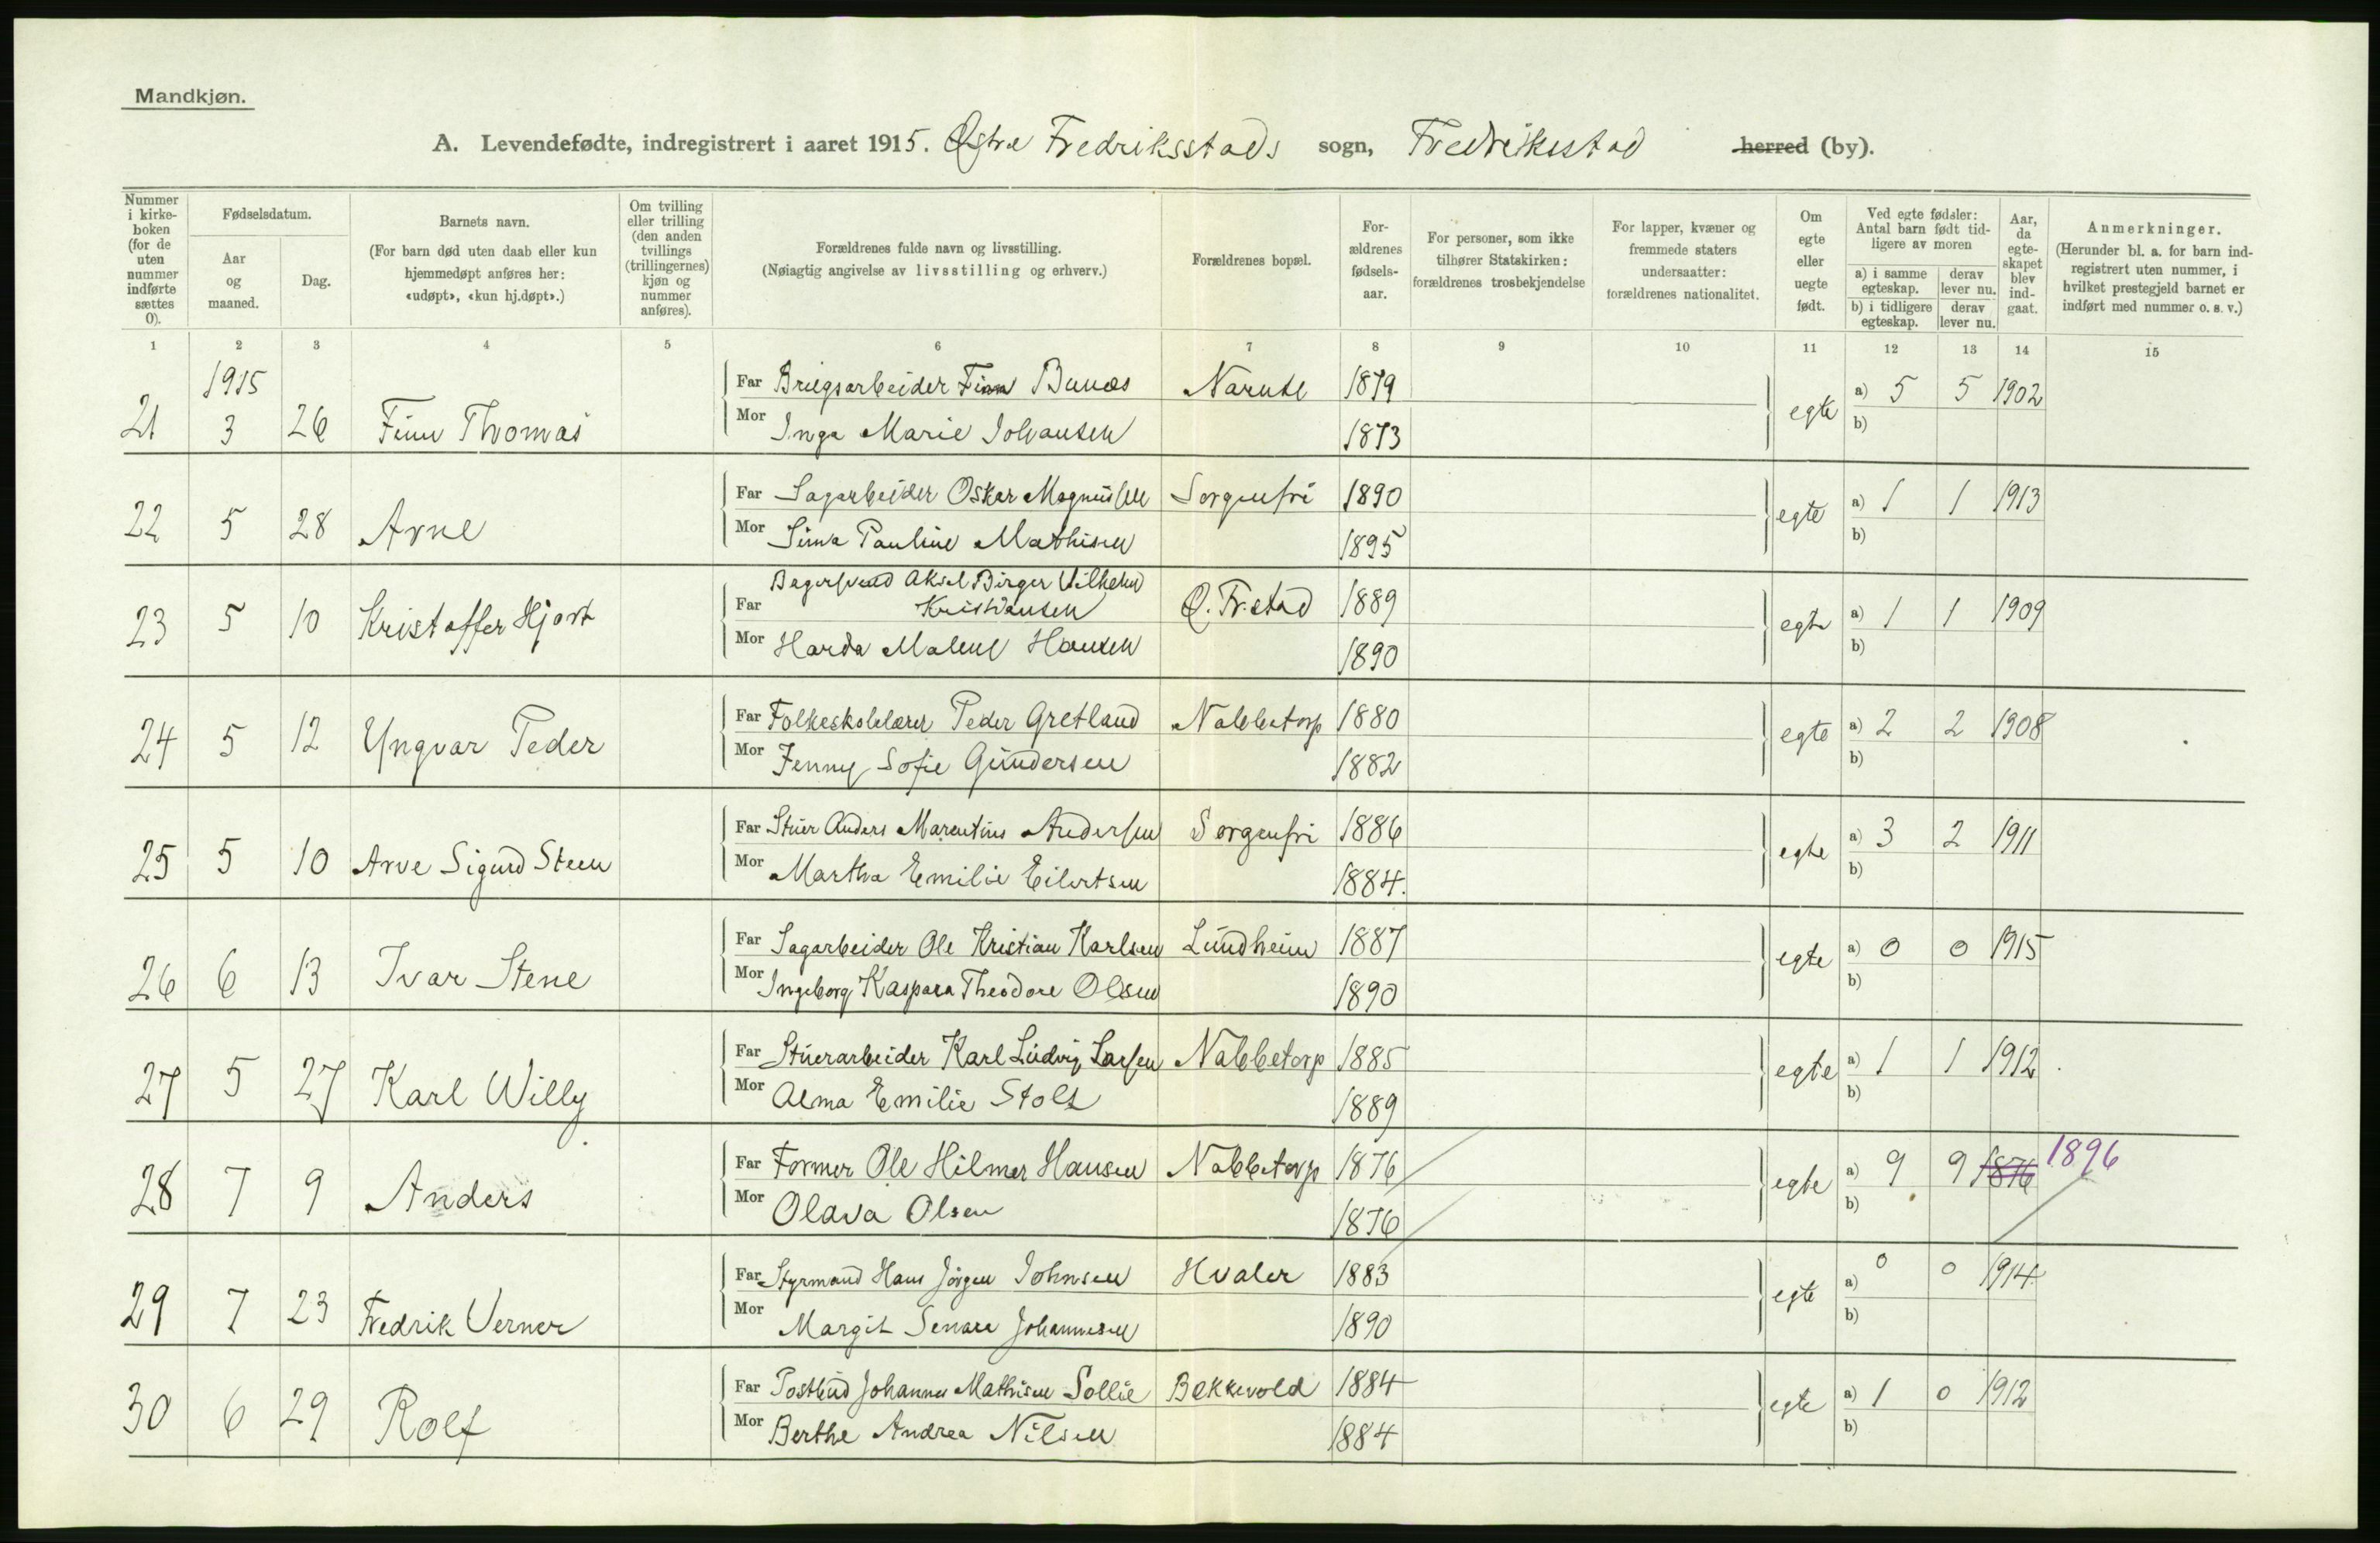 Mandkjøn.
A. Levendefødte, indregistrert i aaret 1915. Østre Fredriksstads sogn, Fredriksstad herred (by).
Nummer i kirkeboken (for de uten nummer indførte sættes 0).
Fødselsdatum.
Aar og maaned.
Dag.
Barnets navn.
(For barn død uten daab eller kun hjemmedøpt anføres her: «udøpt», «kun hj.døpt».)
Om tvilling eller trilling (den anden tvillings (trillingernes) kjøn og nummer anføres).
Forældrenes fulde navn og livsstilling.
(Nøiagtig angivelse av livsstilling og erhverv.)
Forældrenes bopæl.
Forældrenes fødselsaar.
For personer, som ikke tilhører Statskirken: forældrenes trosbekjendelse
For lapper, kvæner og fremmede staters undersaatter: forældrenes nationalitet.
Om egte eller uegte født.
Ved egte fødsler: Antal barn født tidligere av moren
a) i samme egteskap.
derav lever nu.
b) i tidligere egteskap.
derav lever nu.
Aar, da egteskapet blev indgaat.
Anmerkninger.
(Herunder bl. a. for barn indregistrert uten nummer, i hvilket prestegjeld barnet er indført med nummer o. s. v.)
1 2 3 4 5 6 7 8 9 10 11 12 13 14 15
1915
Far Finn 1879
21 3 26 Finn Thomas egte a) 5 5 1902
Mor Inga Marie Johansen 1873
b)
Far Sagarbeider Oskar Magnussen Sorgenfri 1890
22 5 28 Arne egte a) 1 1 1913
Mor Pauline Mathisen 1895
b)
Far Bagersvend Aksel Birger Vilhelm
Kristiansen Ø. Fr.stad 1889
23 5 10 Kristoffer Hjort egte a) 1 1 1909
Mor Harda Malene Hansen 1890
b)
Far Folkeskolelærer Peder Gretland Nabbetorp 1880
24 5 12 Yngvar Peder egte a) 2 2 1908
Mor Jenny Sofie Gundersen 1882
b)
Far Stuer Anders Marentius Andersen Sorgenfri 1886
25 5 10 Arve Sigurd Steen egte a) 3 2 1911
Mor Martha Emilie Eilertsen 1884.
b)
Far Sagarbeider Ole Kristian Karlsen Lundheim 1887
26 6 13 Ivar Stene egte a) 0 0 1915
Mor Ingeborg Kaspara Theodore Olsen 1890
b)
Far Stuerarbeider Karl Ludvig Larsen Nabbetorp 1885
27 5 27 Karl Willy egte a) 1 1 1912
Mor Alma Emilie Stolt 1889
b)
Far Former Ole Hilmer Hansen Nabbetorp 1876
28 7 9 Anders egte a) 9 9 1876 1896
Mor Olava Olsen 1876
b)
Far Styrmand Hans Jörgen Johnsen Hvaler 1883
29 7 23 Fredrik Verner egte a) 0 0 1914
Mor Margit Johannesen 1890
b)
Far Postbud Johannes Mathisen Sollie Bekkevold 1884
30 6 29 Rolf egte a) 1 0 1912
Mor Berthe Andrea Nilsen 1884
b)